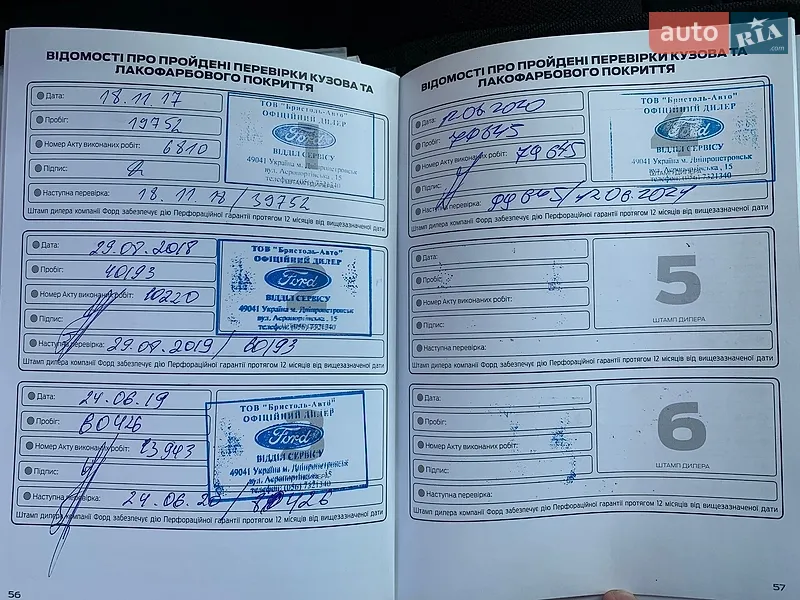 auto RIA .com
ВІДОМОСТІ ПРО ПРОЙДЕНІ ПЕРЕВІРКИ КУЗОВА ТА
ЛАКОФАРБОВОГО ПОКРИТТЯ
Дата: 18.11.17
Пробіг: 19752
Номер Акту виконаних робіт: 6810
Підпис:
Наступна перевірка: 18.11.18 / 39752
ТОВ "Бристоль-Авто"
ОФІЦІЙНИЙ ДИЛЕР
Ford
ВІДДІЛ СЕРВІСУ
49041 Україна м. Дніпропетровськ
вул. Аеропортівська, 15
телефон: (056) 7321340
Штамп дилера компанії Форд забезпечує дію Перфораційної гарантії протягом 12 місяців від вищезазначеної дати
Дата: 29.07.2018
Пробіг: 40193
Номер Акту виконаних робіт: 00220
Підпис:
Наступна перевірка: 29.07.2019 / 60193
ТОВ "Бристоль-Авто"
ОФІЦІЙНИЙ ДИЛЕР
Ford
ВІДДІЛ СЕРВІСУ
49041 Україна м. Дніпропетровськ
вул. Аеропортівська, 15
телефон: (056) 7321340
Штамп дилера компанії Форд забезпечує дію Перфораційної гарантії протягом 12 місяців від вищезазначеної дати
Дата: 24.06.19
Пробіг: 60426
Номер Акту виконаних робіт: 13943
Підпис:
Наступна перевірка: 24.06.20 / 80426
ТОВ "Бристоль-Авто"
ОФІЦІЙНИЙ ДИЛЕР
Ford
ВІДДІЛ СЕРВІСУ
49041 Україна м. Дніпропетровськ
вул. Аеропортівська, 15
телефон: (056) 7321340
Штамп дилера компанії Форд забезпечує дію Перфораційної гарантії протягом 12 місяців від вищезазначеної дати
56
ВІДОМОСТІ ПРО ПРОЙДЕНІ ПЕРЕВІРКИ КУЗОВА ТА
ЛАКОФАРБОВОГО ПОКРИТТЯ
Дата: 12.06.2020
Пробіг: 79645
Номер Акту виконаних робіт: 79645
Підпис:
Наступна перевірка: 99645 / 12.06.2021
ТОВ "Бристоль-Авто"
ОФІЦІЙНИЙ ДИЛЕР
Ford
ВІДДІЛ СЕРВІСУ
49041 Україна м. Дніпропетровськ
вул. Аеропортівська, 15
телефон: (056) 7321340
Штамп дилера компанії Форд забезпечує дію Перфораційної гарантії протягом 12 місяців від вищезазначеної дати
Дата:
Пробіг:
Номер Акту виконаних робіт:
Підпис:
Наступна перевірка:
5
ШТАМП ДИЛЕРА
Штамп дилера компанії Форд забезпечує дію Перфораційної гарантії протягом 12 місяців від вищезазначеної дати
Дата:
Пробіг:
Номер Акту виконаних робіт:
Підпис:
Наступна перевірка:
6
ШТАМП ДИЛЕРА
Штамп дилера компанії Форд забезпечує дію Перфораційної гарантії протягом 12 місяців від вищезазначеної дати
57